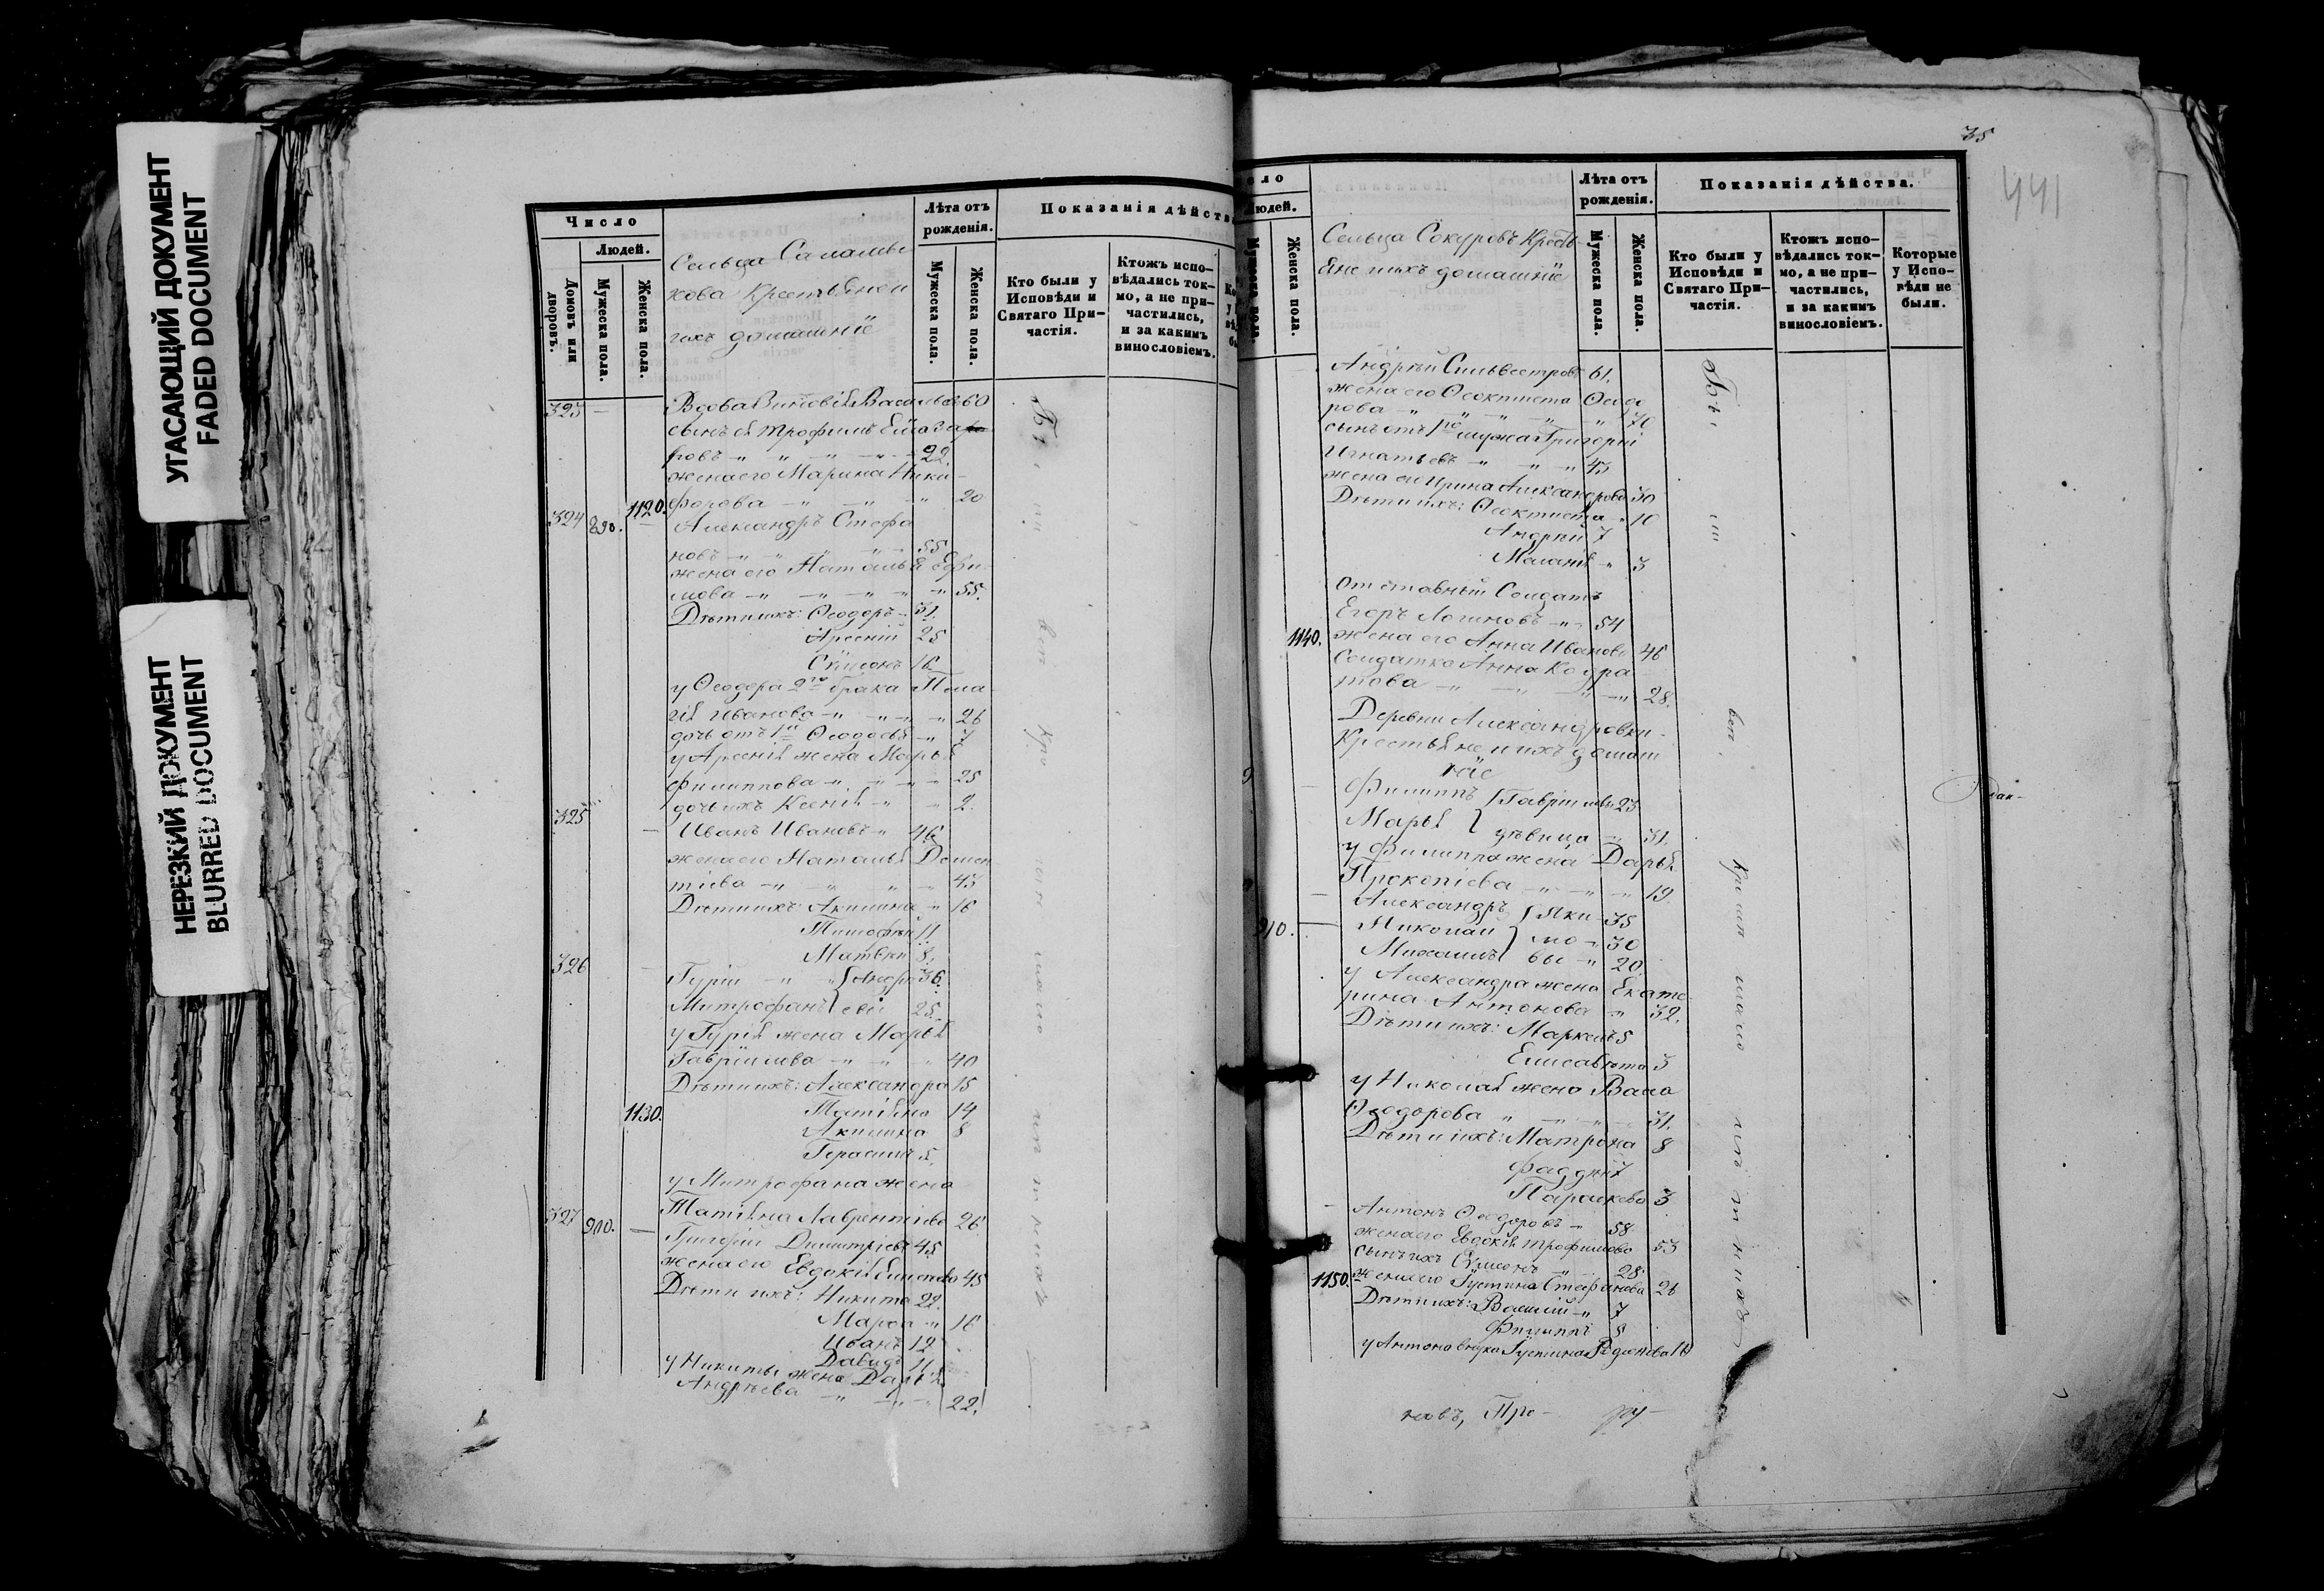 УГАСАЮЩИЙ ДОКУМЕНТ
FADED DOCUMENT
НЕРЕЗКИЙ ДОКУМЕНТ
BLURRED DOCUMENT
Число
Людей.
Домовъ или дворовъ.
Мужеска пола.
Женска пола.
Сельца
кова Крестьяне и
ихъ домашніе
Лѣта отъ рожденія.
Мужеска пола.
Женска пола.
Показанія дѣйства
Кто были у Исповѣди и Святаго При-
частія.
Ктожъ испо-
вѣдались ток-
мо, а не при-
частились,
и за какимъ
винословіемъ.
323 — Вдова Васильева 60
сынъ ея Трофимъ
ровъ 22.
жена его Марина Ники-
1120. форова 20
324 890. — Александръ Стефа
новъ 55
жена его Наталья Ефи-
мова 55.
Дѣти ихъ: Ѳеодоръ 31.
Арсений 25
Сѵмеонъ 16
у Ѳеодора 2го брака Пела
гія Иванова 26
дочь отъ 1й Ѳеодосья 7
у Арсенія жена Марья
Филиппова 25
дочь ихъ Ксенія 2.
325 — Иванъ Ивановъ 46
жена его Наталья Демен
тіева 43
Дѣти ихъ: Акилина 16
Тимофей 11
Матвѣй 8.
326 — Гурій Андре 36.
Митрофанъ еви 25.
у Гурія жена Марья
Гаврилова 40
Дѣти ихъ: Александра 15
1130. Татіяна 14
Акилина 8
Герасимъ 5.
у Митрофана жена
Татіяна Лаврентіева 26
327 900. — Григорій Димитріевъ 45
жена его Евдокія 45
Дѣти ихъ: Никита 22.
Марѳа 16
Иванъ 12
Давидъ 11
у Никиты жена Дарья
Андреева 22.
35
441
Людей.
Мужеска пола.
Женска пола.
Сельца Сокуровъ Кресть-
яне и ихъ домашніе
Лѣта отъ рожденія.
Мужеска пола.
Женска пола.
Показанія дѣйства.
Кто были у Исповѣди и Святаго При-
частія.
Ктожъ испо-
вѣдались ток-
мо, а не при-
частились,
и за какимъ
винословіемъ.
Которые у Испо-
вѣди не были.
Андрей Сильвестровъ 61.
жена его Ѳеоктиста Ѳеодо
рова 70
сынъ отъ 1го мужа Григорій
Игнатьевъ 43
жена его Ирина Александрова 30
Дѣти ихъ: Ѳеоктиста 10
Андрей 7
Маланія 3
Отставный Солдатъ
Егоръ Логиновъ 54
1140. жена его Анна Иванова 46
Солдатка Анна Кодра
това 28.
Деревни Александровки
Крестьяне и ихъ домаш
ніе
Филиппъ Гавриловы 23
Марья дѣвица 31.
у Филиппа жена Дарья
Прокопіева 19.
Александръ Яки 35
910. — Николай мо 30
Михаилъ вы 20
у Александра жена Екате
рина Антонова 32.
Дѣти ихъ: Маркелъ 5
Елисавета 3
у Николая жена Васса
Ѳеодорова 31.
Дѣти ихъ: Матрона 8
Фаддей 7
Параскева 3
Антонъ Ѳеодоровъ 58
жена его Евдокія Трофимова 53
сынъ ихъ Сѵмеонъ 28.
1150. жена его Іустина Стефанова 26
Дѣти ихъ: Василій 7
Филиппъ 5
у Антона внука Іустина 16
новъ, Про- ру-